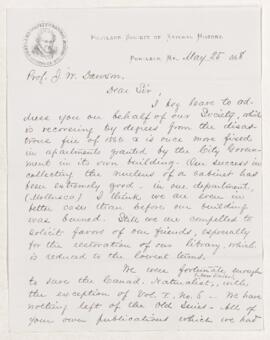 PORTLAND SOCIETY OF NATURAL HISTORY.
PORTLAND, ME. May 25 1868
Prof. J. W. Dawson.
Dear Sir,
I beg leave to ad-
dress you on behalf of our Society, which
is recovering by degrees from the disas-
trous fire of 1866 & is once more fixed
in apartments granted by the City Govern-
ment in its own building. Our success in
collecting the nucleus of a cabinet has
been extremely good - in one department,
(Mollusca) I think we are even in
better case than before our building
was burned. Still we are compelled to
solicit favors of our friends, especially
for the restoration of our library, which
is reduced to the lowest terms.
We were fortunate enough
to save the Canad. Naturalist, with
the exception of Vol. I. No. 6 - We have
nothing left of the Old Series. All of
your own publications which we had